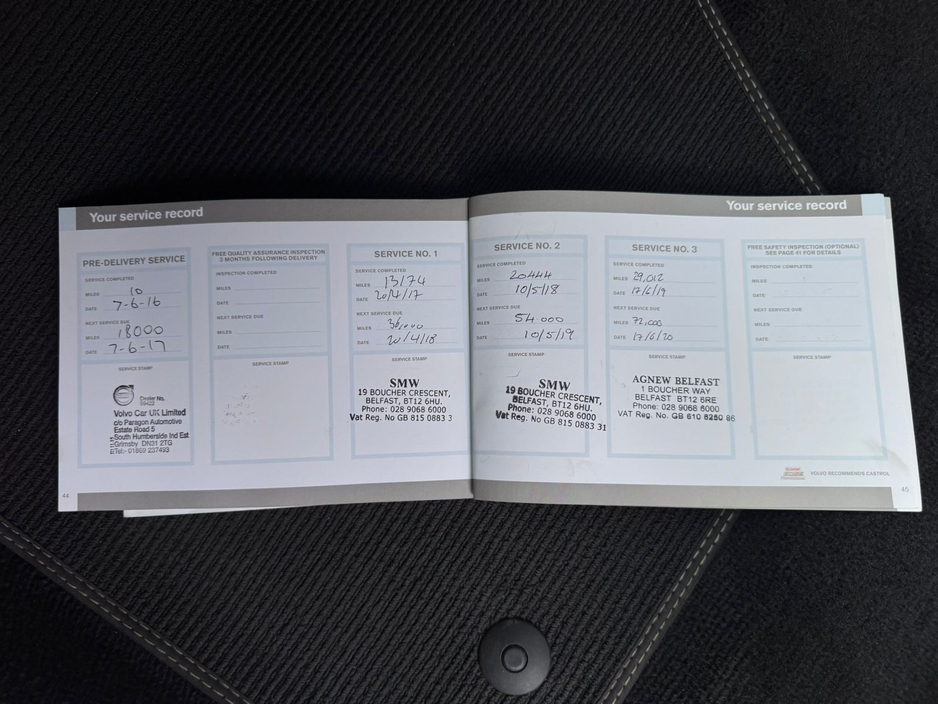 Your service record
PRE-DELIVERY SERVICE
SERVICE COMPLETED
MILES 10
DATE 7-6-16
NEXT SERVICE DUE
MILES 18000
DATE 7-6-17
SERVICE STAMP
Dealer No.
Volvo Car UK Limited
c/o Paragon Automotive
Estate Road 5
South Humberside Ind Est
Grimsby DN31 2TG
Tel:- 01869 237493
FREE QUALITY ASSURANCE INSPECTION
3 MONTHS FOLLOWING DELIVERY
INSPECTION COMPLETED
MILES
DATE
NEXT SERVICE DUE
MILES
DATE
SERVICE STAMP
SERVICE NO. 1
SERVICE COMPLETED
MILES 13174
DATE 20/4/17
NEXT SERVICE DUE
MILES
DATE 20/4/18
SERVICE STAMP
SMW
19 BOUCHER CRESCENT,
BELFAST, BT12 6HU.
Phone: 028 9068 6000
Vat Reg. No GB 815 0883 3
44
Your service record
SERVICE NO. 2
SERVICE COMPLETED
MILES 20444
DATE 10/5/18
NEXT SERVICE DUE
MILES 54000
DATE 10/5/19
SERVICE STAMP
SMW
19 BOUCHER CRESCENT,
BELFAST, BT12 6HU.
Phone: 028 9068 6000
Vat Reg. No GB 815 0883 31
SERVICE NO. 3
SERVICE COMPLETED
MILES 29,012
DATE 17/6/19
NEXT SERVICE DUE
MILES 72,000
DATE 17/6/20
SERVICE STAMP
AGNEW BELFAST
1 BOUCHER WAY
BELFAST BT12 6RE
PHONE: 028 9068 6000
VAT Reg. No. GB 610 8250 86
FREE SAFETY INSPECTION (OPTIONAL)
SEE PAGE 41 FOR DETAILS
INSPECTION COMPLETED
MILES
DATE
NEXT SERVICE DUE
MILES
DATE
SERVICE STAMP
VOLVO RECOMMENDS CASTROL
45